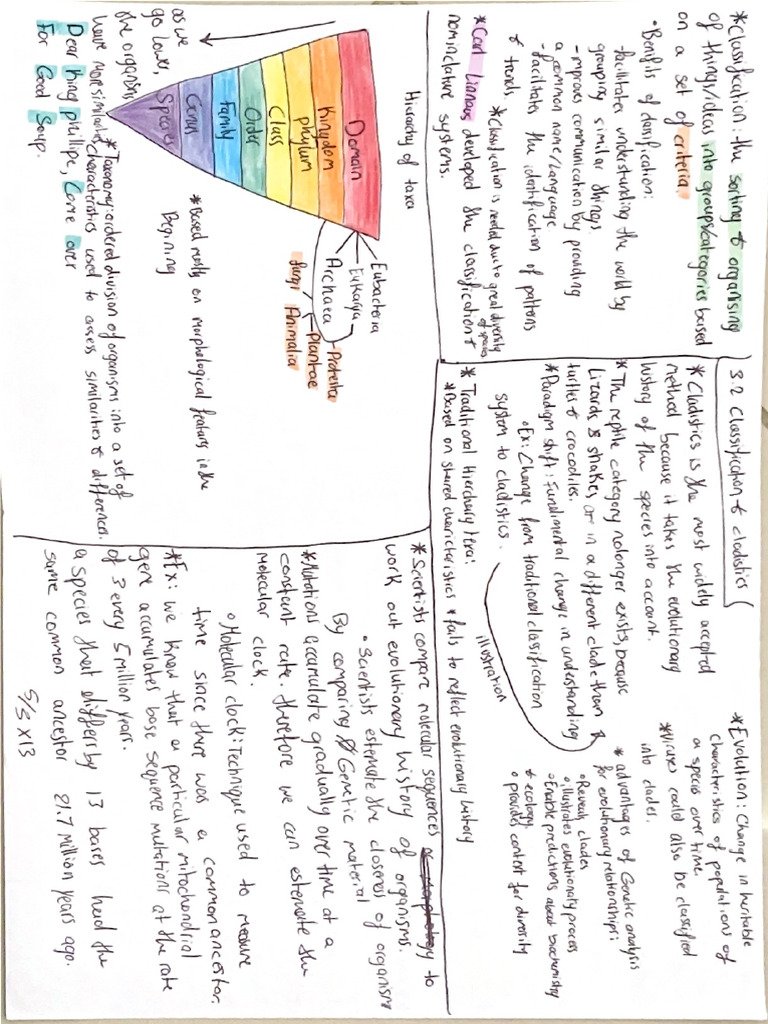 3.2 Classification & cladistics
*Classification: the sorting & organising
of things/ideas into groups/categories based
on a set of criteria.
•Benifits of classification:
-facilitates understanding the world by
grouping similar things.
-improves communication by providing
a common name/language
-facilitates the identification of patterns
& trends.
*Classification is needed due to great diversity
of species
*Carl Linnaus developed the classification &
nominclature systems.
Hierachy of taxa
Domain
Kingdom
phylum
Class
Order
Family
Genus
Species
Eubacteria
Eukarya
Archaea
Protetista
Plantae
Animalia
fungi
as we
go lower,
the organisms
have more similar
characteristics
*Based mostly on morphological features in the
Begining
*Taxonomy: ordered division of organisms into a set of
characteristics used to assess similarities & differences.
Dear King phillipe, Come over
For Good Soup.
*Cladistics is the most widely accepted
method because it takes the evolutionary
history of the species into account.
*The reptile category nolonger exists, because
Lizards & snakes are in a different clade than
turtles & crocodiles.
*Paradigm shift: Fundimental change in understanding
•Ex: Change from traditional classification
system to cladistics.
illustration
*Traditional Hierchary texa:
*Based on shared characteristics & fails to reflect evolutionary history
*Evolution: Change in heritable
characteristics of populations of
a specie over time.
*Viruses could also be classified
into clades.
*advantages of Genetic analysis
for evolutionary relationships:
•Reveals clades
•illustrates evolutionary process
•Enable predictions about biochemistry
& ecology.
•provides context for diversity
*Scientists compare molecular sequences or morphology to
work out evolutionary history of organisms.
•Scientists estemate the closeness of organism
By comparing Genetic material
*Mutations accumulate gradually over time at a
constant rate. therefore we can estemate the
molecular clock.
•Molecular clock: Technique used to measure
time since there was a common ancestor.
*Ex: we know that a particular mitochondrial
gene accumulates base sequence mutations at the rate
of 3 every 5 million years.
a species that differs by 13 bases had the
same common ancestor 21.7 Million years ago.
5/3 x 13